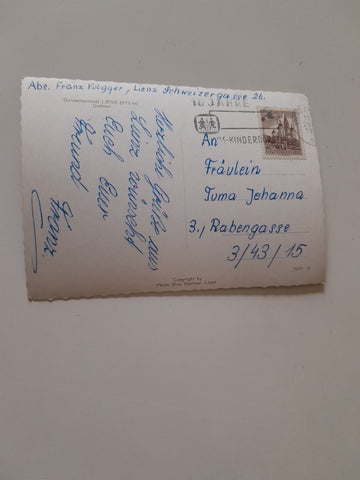 Abs. Franz Volgger, Lienz Schweizergasse 26.
Dolomitenstadt LIENZ (673 m)
Osttirol
Herzliche Grüße aus
Lienz wünscht
Euch Euer
Freund
Franz.
10 JAHRE
-KINDER
An
Fräulein
Tuma Johanna
3., Rabengasse
3/43/15
Copyright by
Photo Dina Mariner, Lienz